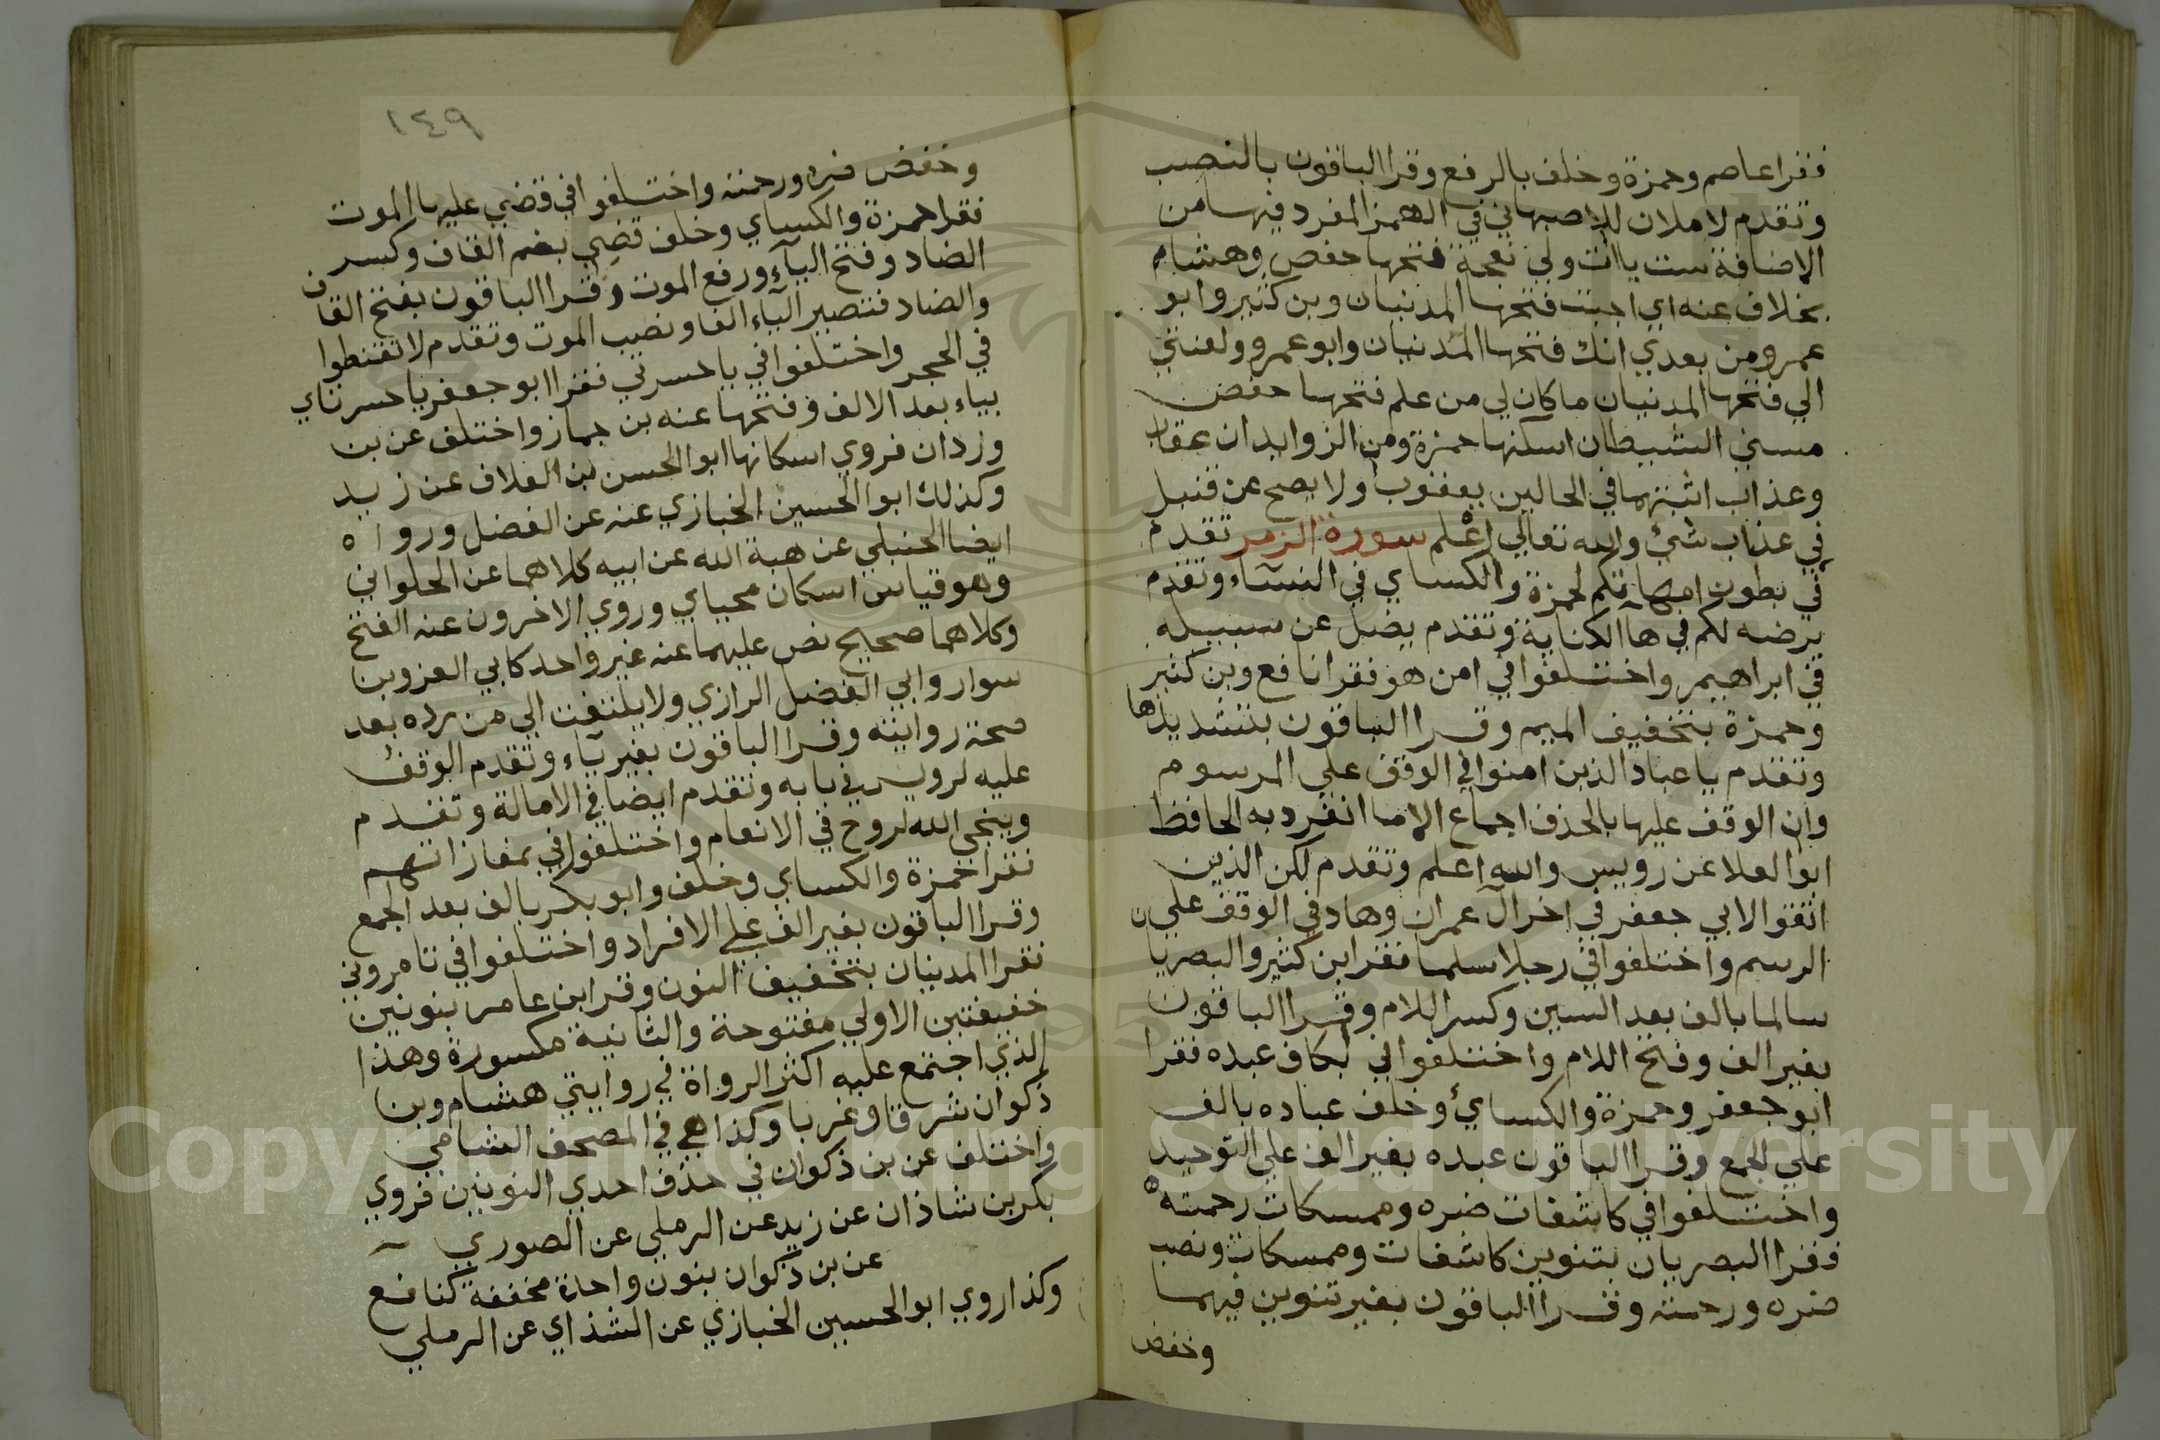 فقرا عاصم وحمزة وخلف بالرفع وقرا الباقون بالنصب
وتقدم لاملان للاصبهاني في الهمز المفرد فيها من
الاضافة ست ياات ولي نعجة فتحها حفص وهشام
بخلاف عنه اي احببت فتحها المدنيان وبن كثير وابو
عمرو من بعدي انك فتحها المدنيان وابو عمرو ولعنتي
الي فتحها المدنيان ما كان لي من علم فتحها حفص
مسني الشيطان اسكنها حمزة ومن الزوايد ان عقاب
وعذاب اثبتهما في الحالين يعقوب ولا يصح عن قنبل
في عذاب شئ والله تعالي اعلم سورة الزمر تقدم
في بطون امهاتكم لحمزة والكساي في النساء وتقدم
يرضه لكم في هآ الكناية وتقدم يضل عن سبيله
في ابراهيم واختلفوا في امن هو فقرا نافع وبن كثير
وحمزة بتخفيف الميم وقرا الباقون بتشديدها
وتقدم يا عباد الذين امنوا في الوقف علي المرسوم
وان الوقف عليها بالحذف اجماع الا ما انفرد به الحافظ
ابو العلا عن رويس والله اعلم وتقدم لكن الذين
اتقوا لابي جعفر في اخر آل عمران وهاد في الوقف علي
الرسم واختلفوا في رجلا سلما فقرا ابن كثير والبصريان
سالما بالف بعد السين وكسر اللام وقرا الباقون
بغير الف وفتح اللام واختلفوا في بكاف عبده فقرا
ابو جعفر وحمزة والكسائ وخلف عباده بالف
علي الجمع وقرا الباقون عبده بغير الف علي التوحيد
واختلفوا في كاشفات ضره وممسكات رحمته
فقرا البصريان بتنوين كاشفات وممسكات ونصب
ضره ورحمته وقرا الباقون بغير تنوين فيهما
وخفض
١٤٩
وخفض ضره ورحمته واختلفوا في قضي عليها الموت
فقرا حمزة والكساي وخلف قضي بضم القاف وكسر
الضاد وفتح اليآء ورفع الموت وقرا الباقون بفتح القاف
والضاد فتصير اليآء الفا ونصب الموت وتقدم لا تقنطوا
في الحجر واختلفوا في يا حسرتي فقرا ابو جعفر يا حسرتاي
بياء بعد الالف وفتحها عنه بن جماز واختلف عن بن
وردان فروي اسكانها ابو الحسن بن العلاف عن زيد
وكذلك ابو الحسين الخبازي عنه عن الفضل ورواه
ايضا الحنبلي عن هبة الله عن ابيه كلاهما عن الحلواني
وهو قياس اسكان محياي وروي الاخرون عنه الفتح
وكلاهما صحيح نص عليهما عنه غير واحد كابي العز وبن
سوار وابي الفضل الرازي ولا يلتفت الي من رده بعد
صحة روايته وقرا الباقون بغير يآء وتقدم الوقف
عليه لرويس في بابه وتقدم ايضا في الامالة وتقدم
وينجي الله لروح في الانعام واختلفوا في بمفازاتهم
فقرا حمزة والكساي وخلف وابو بكر بالف بعد الجمع
وقرا الباقون بغير الف علي الافراد واختلفوا في تامروني
فقرا المدنيان بتخفيف النون وقرا ابن عامر بنونين
خفيفتين الاولي مفتوحة والثانية مكسورة وهذا
الذي اجتمع عليه اكثر الرواة في روايتي هشام وبن
ذكوان شرقا وغربا وكذا هي في المصحف الشامي
واختلف عن بن ذكوان في حذف احدي النونين فروي
بكر بن شاذان عن زيد عن الرملي عن الصوري
عن بن ذكوان بنون واحدة مخففة كنافع
وكذا روي ابو الحسين الخبازي عن الشذاي عن الرملي
Copyright © King Saud University